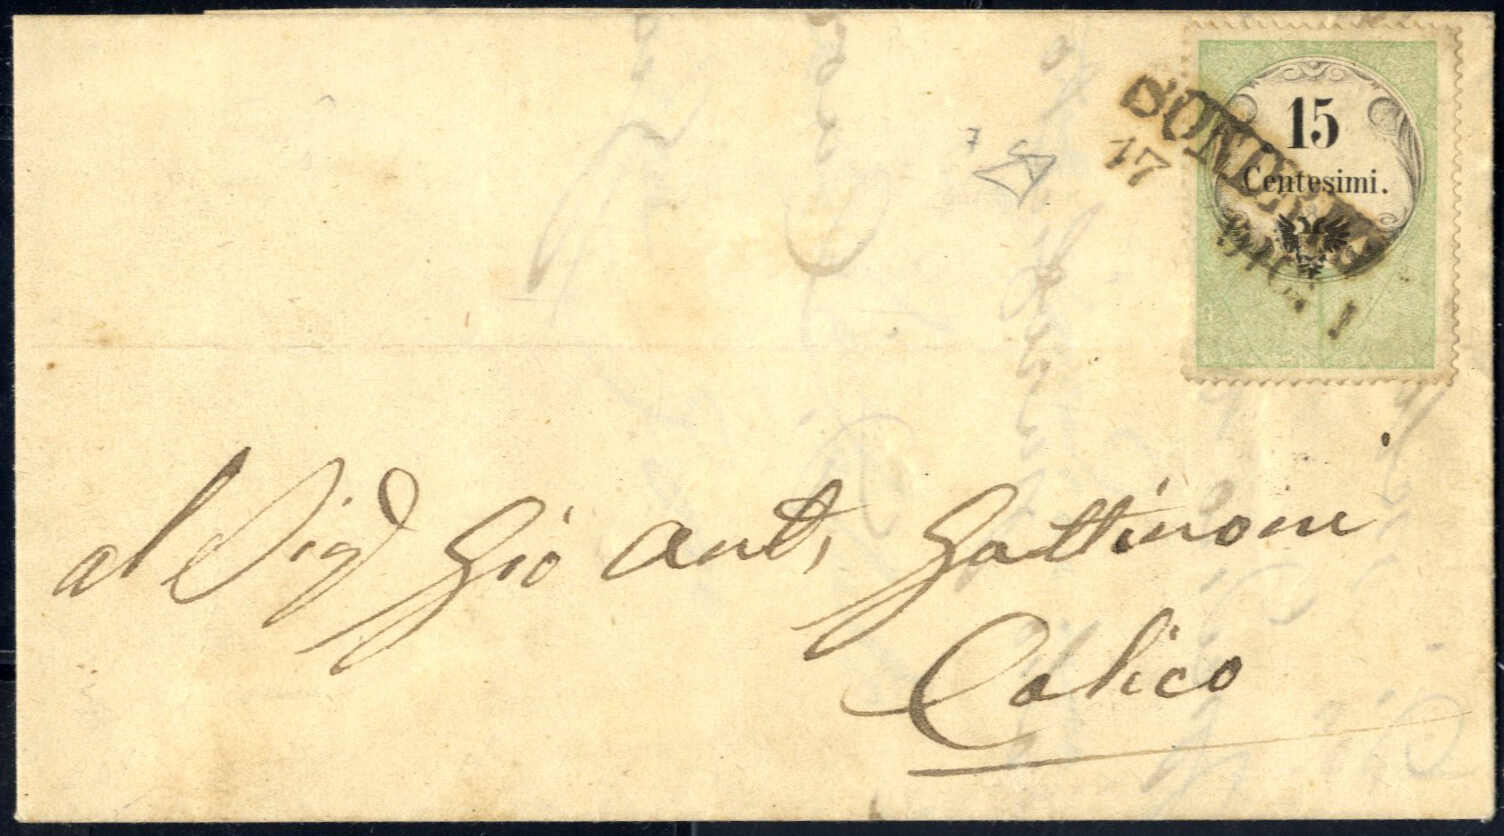 15
Centesimi.
SONDRIO
17
MAG. 1
al Sigr Gio Ant, Gattinoni
Colico